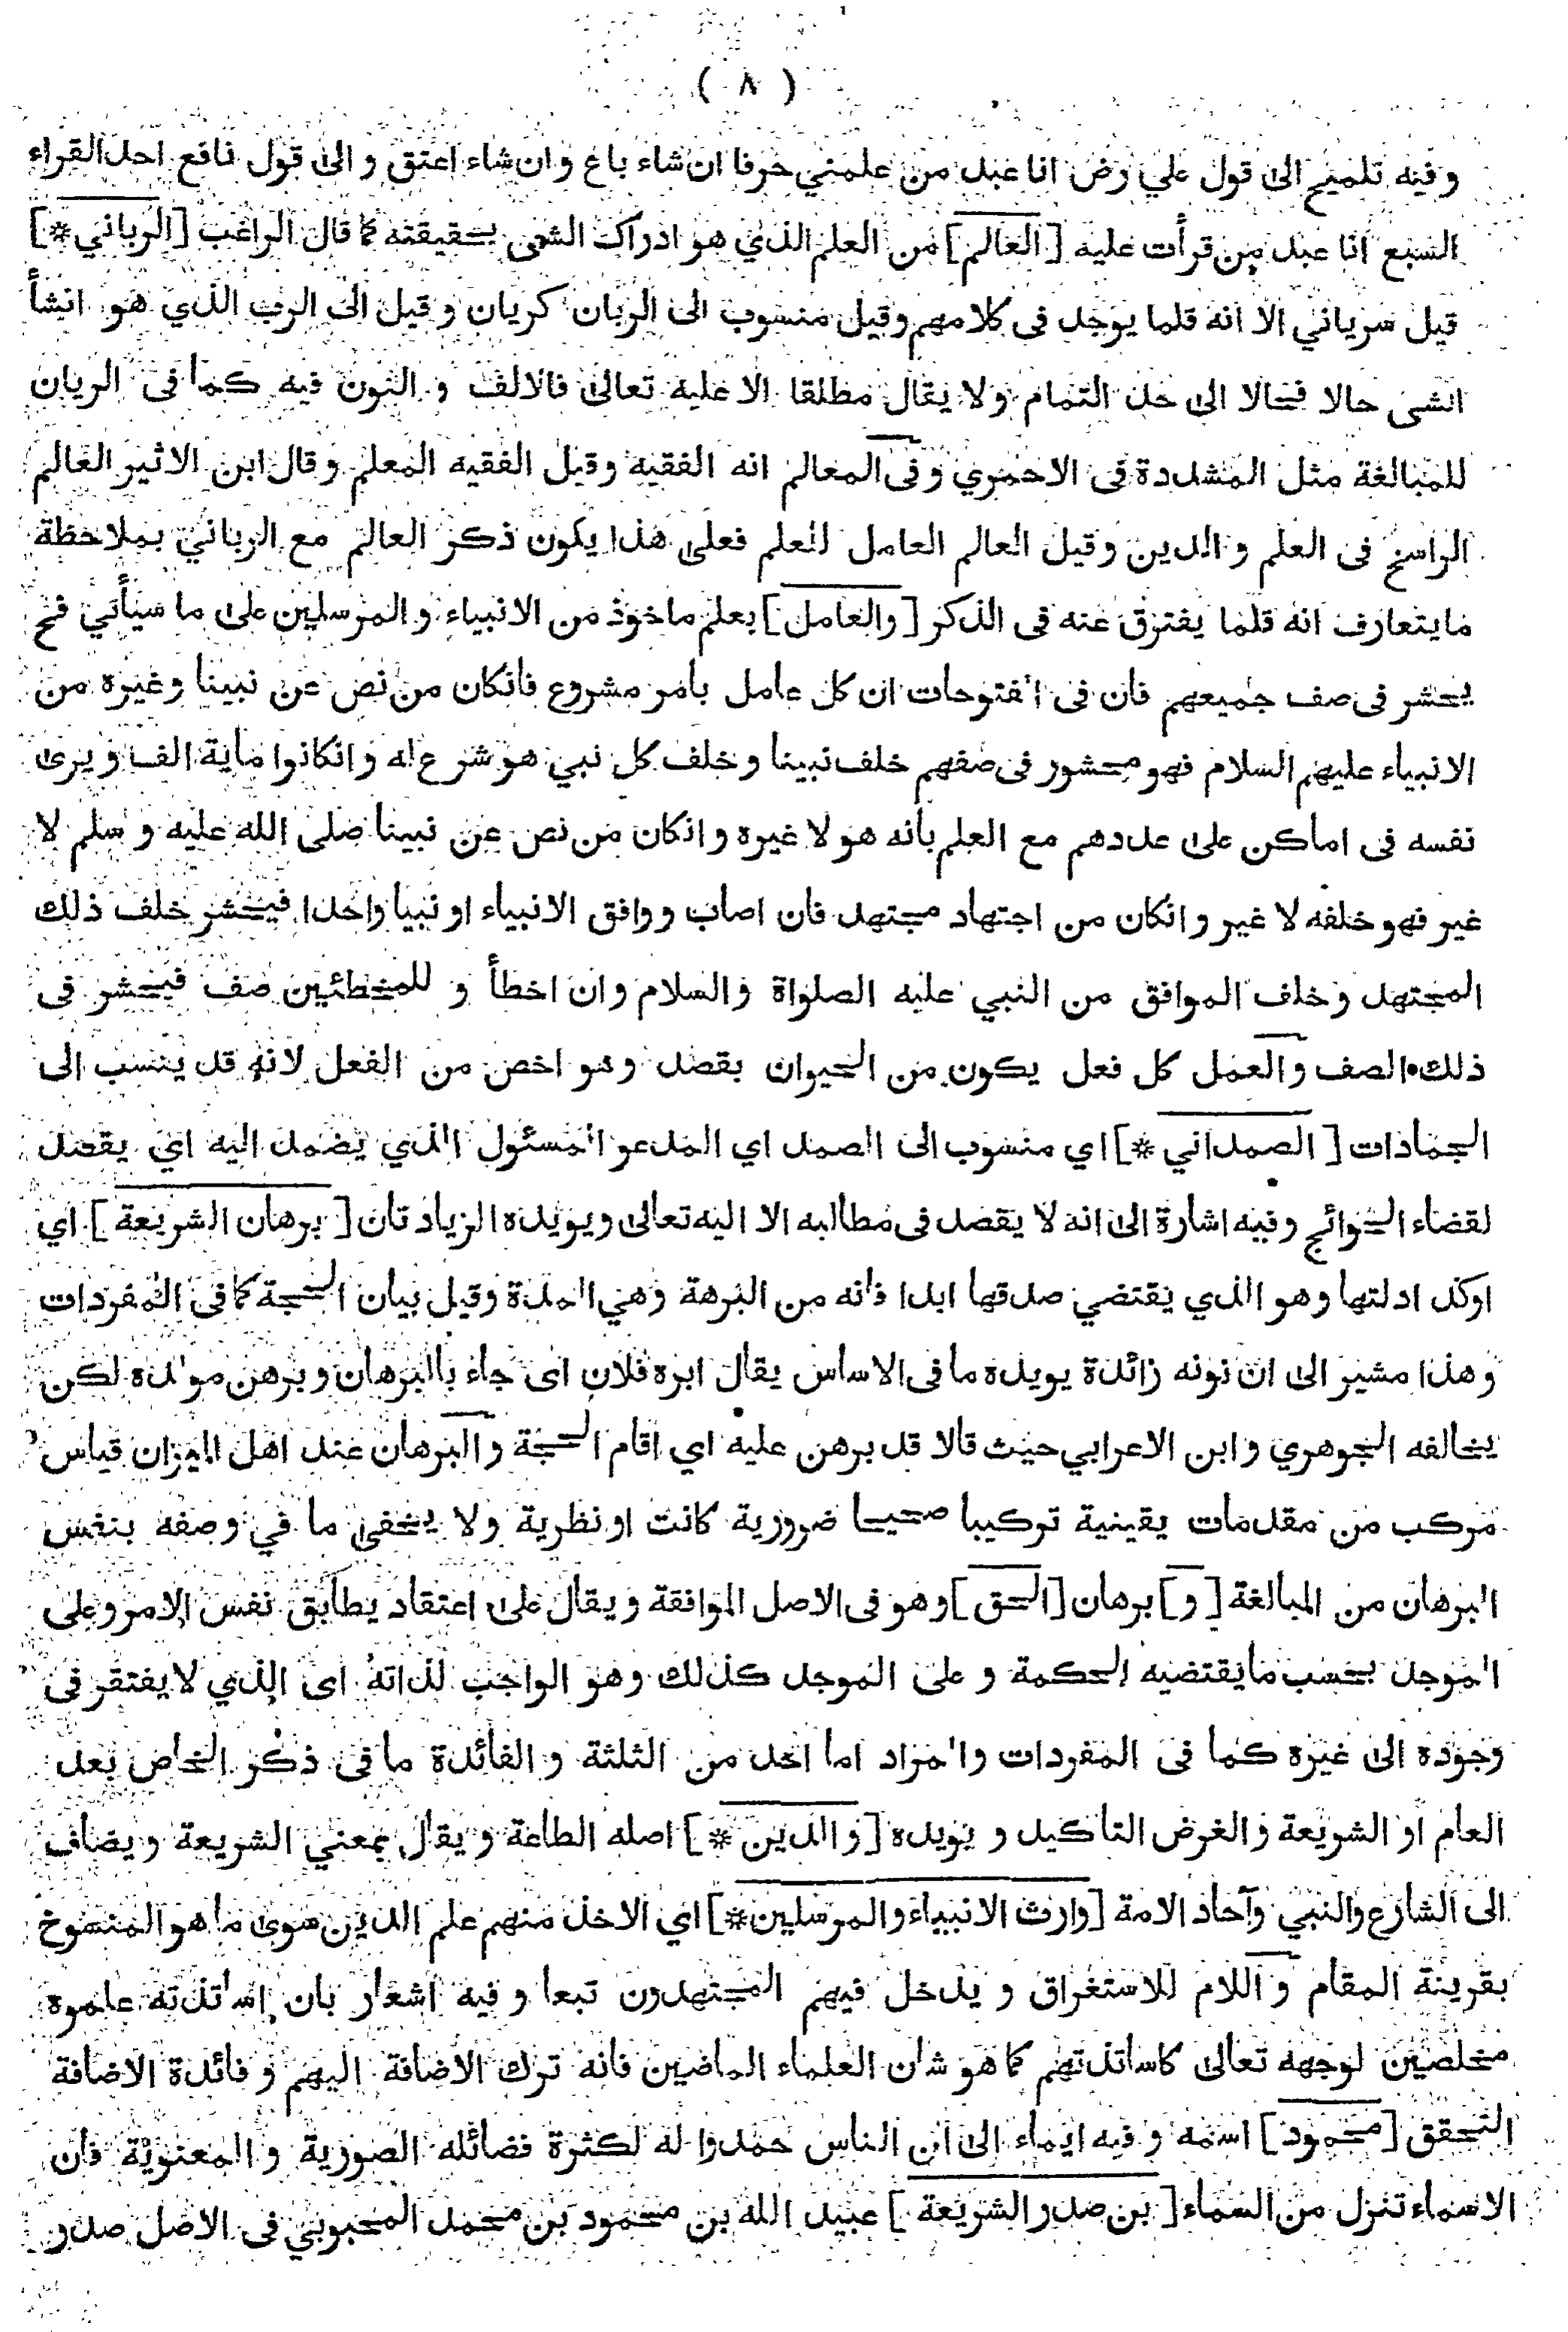 ( ٨ )
و فيه تلميح الى قول علي رض انا عبد من علمني حرفا ان شاء باع و ان شاء اعتق و الى قول نافع احد القراء
السبع انا عبد من قرأت عليه [العالم] من العلم الذي هو ادراك الشى بحقيقته كما قال الراغب [الرباني *]
قيل سرياني الا انه قلما يوجد فى كلامهم وقيل منسوب الى الربان كريان و قيل الى الرب الذي هو انشأ
الشى حالا فحالا الى حد التمام ولا يقال مطلقا الا عليه تعالى فالالف و النون فيه كما فى الريان
للمبالغة مثل المشددة فى الاحمري وفى المعالم انه الفقيه وقيل الفقيه المعلم وقال ابن الاثير العالم
الراسخ فى العلم و الدين وقيل العالم العامل المعلم فعلى هذا يكون ذكر العالم مع الرباني بملاحظة
ما يتعارف انه قلما يفترق عنه فى الذكر [والعامل] بعلم ماخوذ من الانبياء و المرسلين على ما سيأتي فح
يحشر فى صف جميعهم فان فى الفتوحات ان كل عامل بامر مشروع فانكان من نص عن نبينا وغيره من
الانبياء عليهم السلام فهو محشور فى صفهم خلف نبينا و خلف كل نبي هو شرع له و انكانوا ماية الف و يرى
نفسه فى اماكن على عددهم مع العلم بأنه هو لا غيره و انكان من نص عن نبينا صلى الله عليه و سلم لا
غير فهو خلفه لا غير و انكان من اجتهاد مجتهد فان اصاب و وافق الانبياء او نبيا واحدا فيحشر خلف ذلك
المجتهد وخلف الموافق من النبي عليه الصلواة والسلام وان اخطأ و للمخطئين صف فيحشر فى
ذلك الصف والعمل كل فعل يكون من الحيوان بقصد وهو اخص من الفعل لانه قد ينسب الى
الجمادات [ الصمداني *] اي منسوب الى الصمد اي المدعو المسئول الذي يصمد اليه اي يقصد
لقضاء الحوائج وفيه اشارة الى انه لا يقصد فى مطالبه الا اليه تعالى ويويده الزيادتان [ برهان الشريعة ] اي
اوكد ادلتها وهو الذي يقتضي صدقها ابدا فانه من البرهة وهي المدة وقيل بيان الحجة كما فى المفردات
وهذا مشير الى ان نونه زائدة يويده ما فى الاساس يقال ابره فلان اى جاء بالبرهان و برهن مولدة لكن
يخالفه الجوهري وابن الاعرابي حيث قالا قد برهن عليه اي اقام الحجة والبرهان عند اهل الميزان قياس
مركب من مقدمات يقينية تركيبا صحيحا ضرورية كانت او نظرية ولا يخفى ما في وصفه بنفس
البرهان من المبالغة [و] برهان [الحق] وهو فى الاصل الموافقة و يقال على اعتقاد يطابق نفس الامر وعلى
الموجد بحسب ما يقتضيه الحكمة و على الموجد كذلك وهو الواجب لذاته اى الذي لا يفتقر فى
وجوده الى غيره كما فى المفردات والمراد اما احد من الثلثة و الفائدة ما فى ذكر الخاص بعد
العام او الشريعة والغرض التاكيد و يويده [والدين *] اصله الطاعة و يقال بمعني الشريعة و يضاف
الى الشارع والنبي وآحاد الامة [وارث الانبياء والمرسلين*] اي الاخذ منهم علم الدين سوى ما هو المنسوخ
بقرينة المقام و اللام للاستغراق و يدخل فيهم المجتهدون تبعا و فيه اشعار بان اساتذته علموه
مخلصين لوجهه تعالى كاساتذتهم كما هو شان العلماء الماضين فانه ترك الاضافة اليهم و فائدة الاضافة
التحقق [محمود] اسمه و فيه ايماء الى ان الناس حمدوا له لكثرة فضائله الصورية و المعنوية فان
الاسماء تنزل من السماء [ بن صدر الشريعة ] عبيد الله بن محمود بن محمد المحبوبي فى الاصل صدر